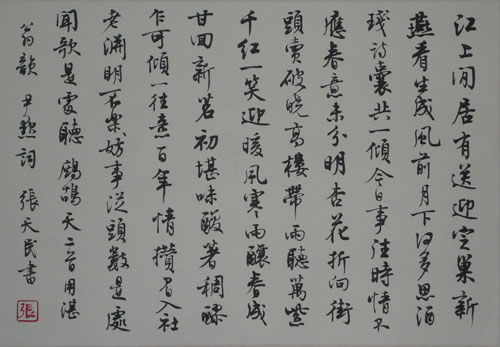 江上閒居有送迎定巢新
燕看生成風前月下何多思酒
琖詩囊共一傾今日事往時情不
應春意未分明杏花折向街
頭賣破曉高樓帶雨聽萬紫
千紅一笑迎暖風寒雨釀春成
甘回新茗初堪味酸著稠醪
乍可傾一往意百年情攢眉入社
老淵明不樂妨事從頭數是處
聞歌是處聽 鷓鴣天二首用湛
翁韻 尹默詞 張天民書
張